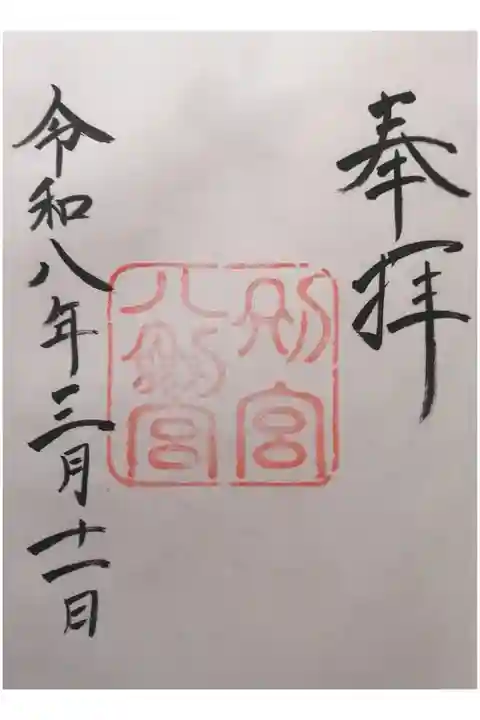 奉拝
別宮
八幡宮
令和八年三月十一日